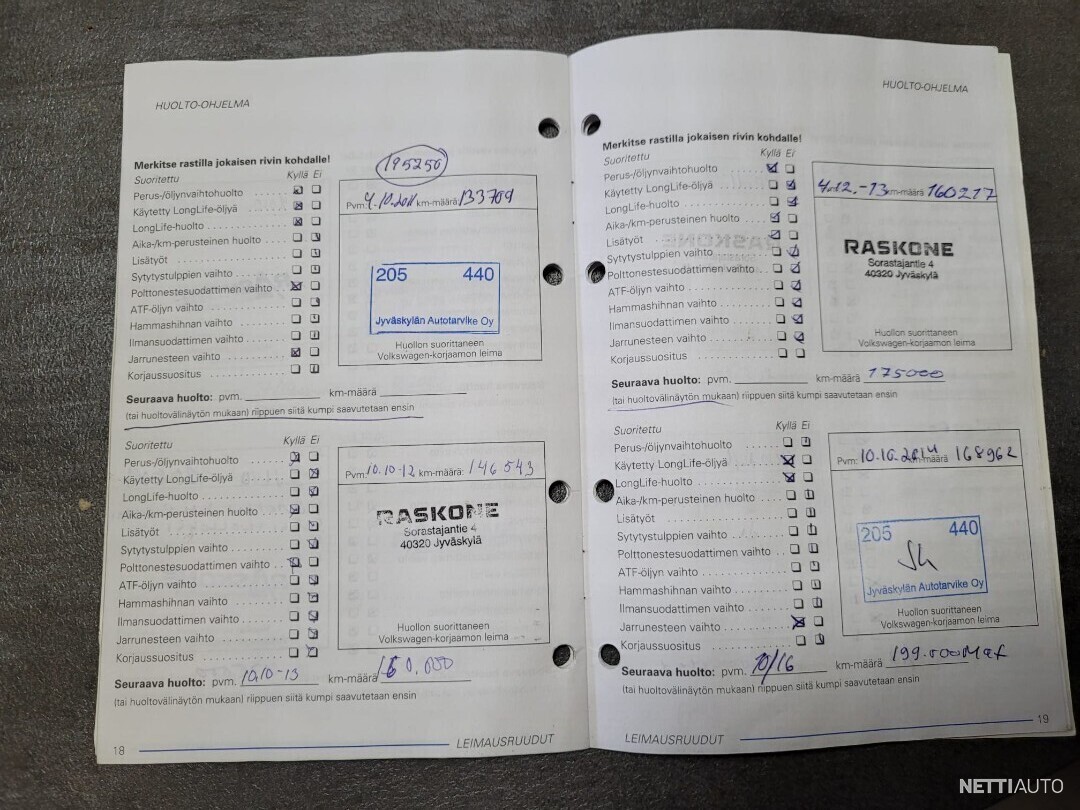 HUOLTO-OHJELMA
Merkitse rastilla jokaisen rivin kohdalle!
195250
Suoritettu Kyllä Ei
Perus-/öljynvaihtohuolto
Käytetty LongLife-öljyä
LongLife-huolto
Aika-/km-perusteinen huolto
Lisätyöt
Sytytystulppien vaihto
Polttonestesuodattimen vaihto
ATF-öljyn vaihto
Hammashihnan vaihto
Ilmansuodattimen vaihto
Jarrunesteen vaihto
Korjaussuositus
Pvm: 4.10.2011 km-määrä: 133709
205 440
Jyväskylän Autotarvike Oy
Huollon suorittaneen
Volkswagen-korjaamon leima
Seuraava huolto: pvm. km-määrä
(tai huoltovälinäytön mukaan) riippuen siitä kumpi saavutetaan ensin
Suoritettu Kyllä Ei
Perus-/öljynvaihtohuolto
Käytetty LongLife-öljyä
LongLife-huolto
Aika-/km-perusteinen huolto
Lisätyöt
Sytytystulppien vaihto
Polttonestesuodattimen vaihto
ATF-öljyn vaihto
Hammashihnan vaihto
Ilmansuodattimen vaihto
Jarrunesteen vaihto
Korjaussuositus
Pvm: 10.10-12 km-määrä: 146543
RASKONE
Sorastajantie 4
40320 Jyväskylä
Huollon suorittaneen
Volkswagen-korjaamon leima
Seuraava huolto: pvm. 10.10-13 km-määrä 160.000
(tai huoltovälinäytön mukaan) riippuen siitä kumpi saavutetaan ensin
18 LEIMAUSRUUDUT
HUOLTO-OHJELMA
Merkitse rastilla jokaisen rivin kohdalle!
Suoritettu Kyllä Ei
Perus-/öljynvaihtohuolto
Käytetty LongLife-öljyä
LongLife-huolto
Aika-/km-perusteinen huolto
Lisätyöt
Sytytystulppien vaihto
Polttonestesuodattimen vaihto
ATF-öljyn vaihto
Hammashihnan vaihto
Ilmansuodattimen vaihto
Jarrunesteen vaihto
Korjaussuositus
4.12.-13 km-määrä 160217
RASKONE
Sorastajantie 4
40320 Jyväskylä
Huollon suorittaneen
Volkswagen-korjaamon leima
Seuraava huolto: pvm. km-määrä 175000
(tai huoltovälinäytön mukaan) riippuen siitä kumpi saavutetaan ensin
Suoritettu Kyllä Ei
Perus-/öljynvaihtohuolto
Käytetty LongLife-öljyä
LongLife-huolto
Aika-/km-perusteinen huolto
Lisätyöt
Sytytystulppien vaihto
Polttonestesuodattimen vaihto
ATF-öljyn vaihto
Hammashihnan vaihto
Ilmansuodattimen vaihto
Jarrunesteen vaihto
Korjaussuositus
Pvm: 10.10.2014 km-määrä 168962
205 440
Jyväskylän Autotarvike Oy
Huollon suorittaneen
Volkswagen-korjaamon leima
Seuraava huolto: pvm. 10/16 km-määrä 199.000 Max
(tai huoltovälinäytön mukaan) riippuen siitä kumpi saavutetaan ensin
LEIMAUSRUUDUT 19
NETTIAUTO